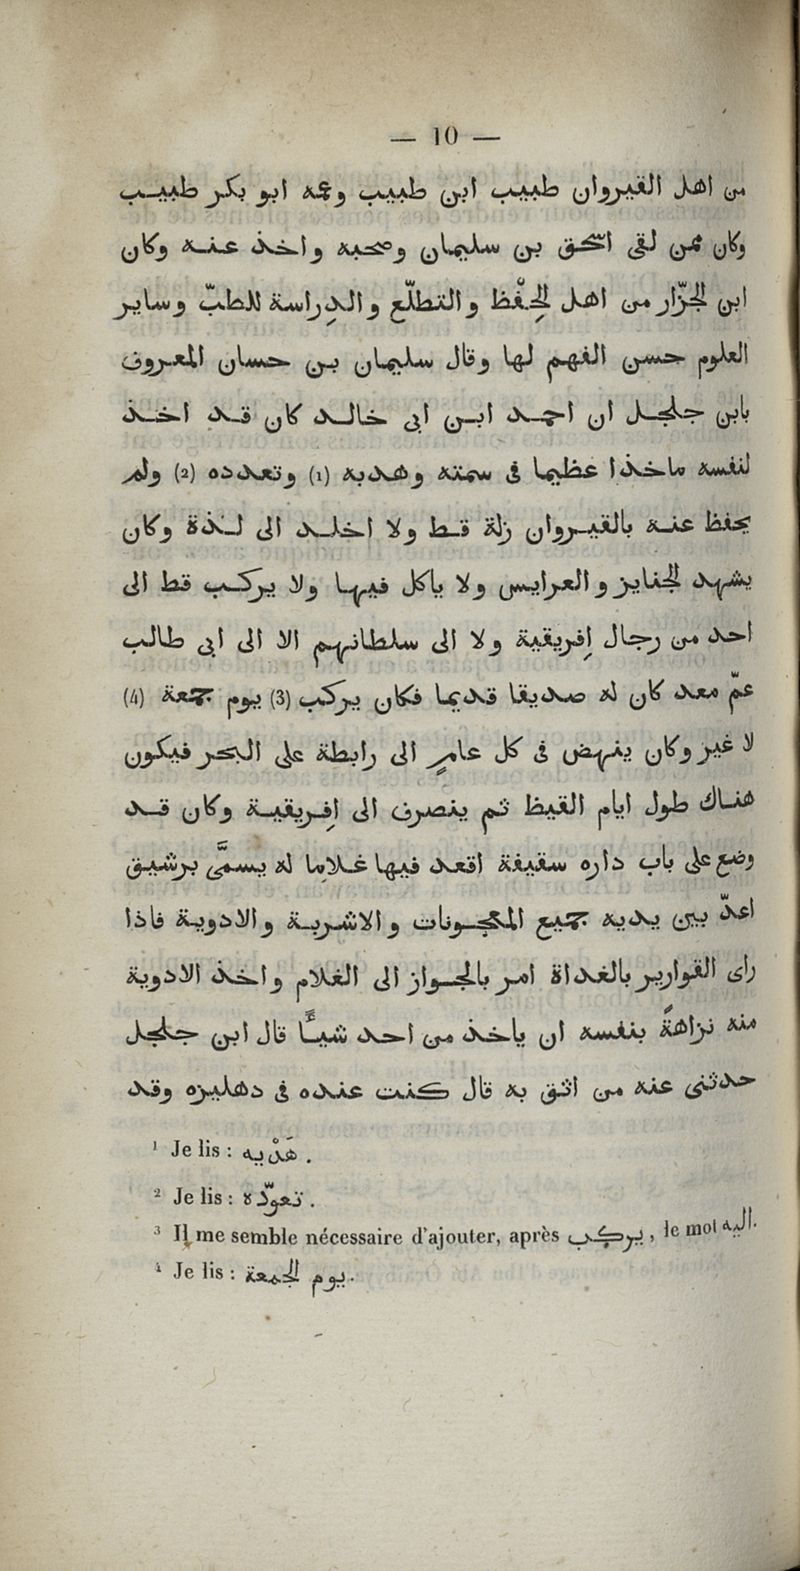 — 10 —
من اهل القيروان طبيب ابن طبيب وعمه ابو بكر طبيب
وكان ممن لقى اسحق بن سليمان وصحبه واخذ عنه وكان
ابن الجزّار من اهل الحِفْظ والتطلّع والدِراسة للطبّ وساير
العلوم حسن الفهم لها وقال سليمان بن حسان المعروف
بابن جلجل ان احمد ابن ابى خالد كان قد اخذ
لنفسه ماخذا عظيما فى سمته وهدبه (1) وتعدده (2) ولم
يحفظ عنه بالقيروان زلة قط ولا اخلد الى لذة وكان
يشهد الجنايز والعرايس ولا ياكل فيها ولا يركب قط الى
احد من رجال إفريقية ولا الى سلطانهم الا الى ابى طالب
عمّ معد كان له صديقا قديما فكان يركب (3) يوم جمعة (4)
لا غير وكان ينهض فى كل عامٍ الى رابطة على البحر فيكون
هناك طول ايام القيظ ثم ينصرف الى إفريقية وكان قد
وضع على باب داره سقيفة اقعد فيها غلاما له يسمَّى برشيق
اعدّ بين يديه جميع المعجونات والاشربة والادوية فاذا
راى القوارير بالغداة امر بالجواز الى الغلام واخذ الادوية
منه نزاهةً بنفسه ان ياخذ من احد شيـًٔا قال ابن جلجل
حدثنى عنه من اثق به قال كنت عنده فى دهليزه وقد
¹ Je lis : هَدْيه .
² Je lis : تعوّده .
³ Il me semble nécessaire d'ajouter, après يركب , le mot اليه.
⁴ Je lis : يوم الجمعة.